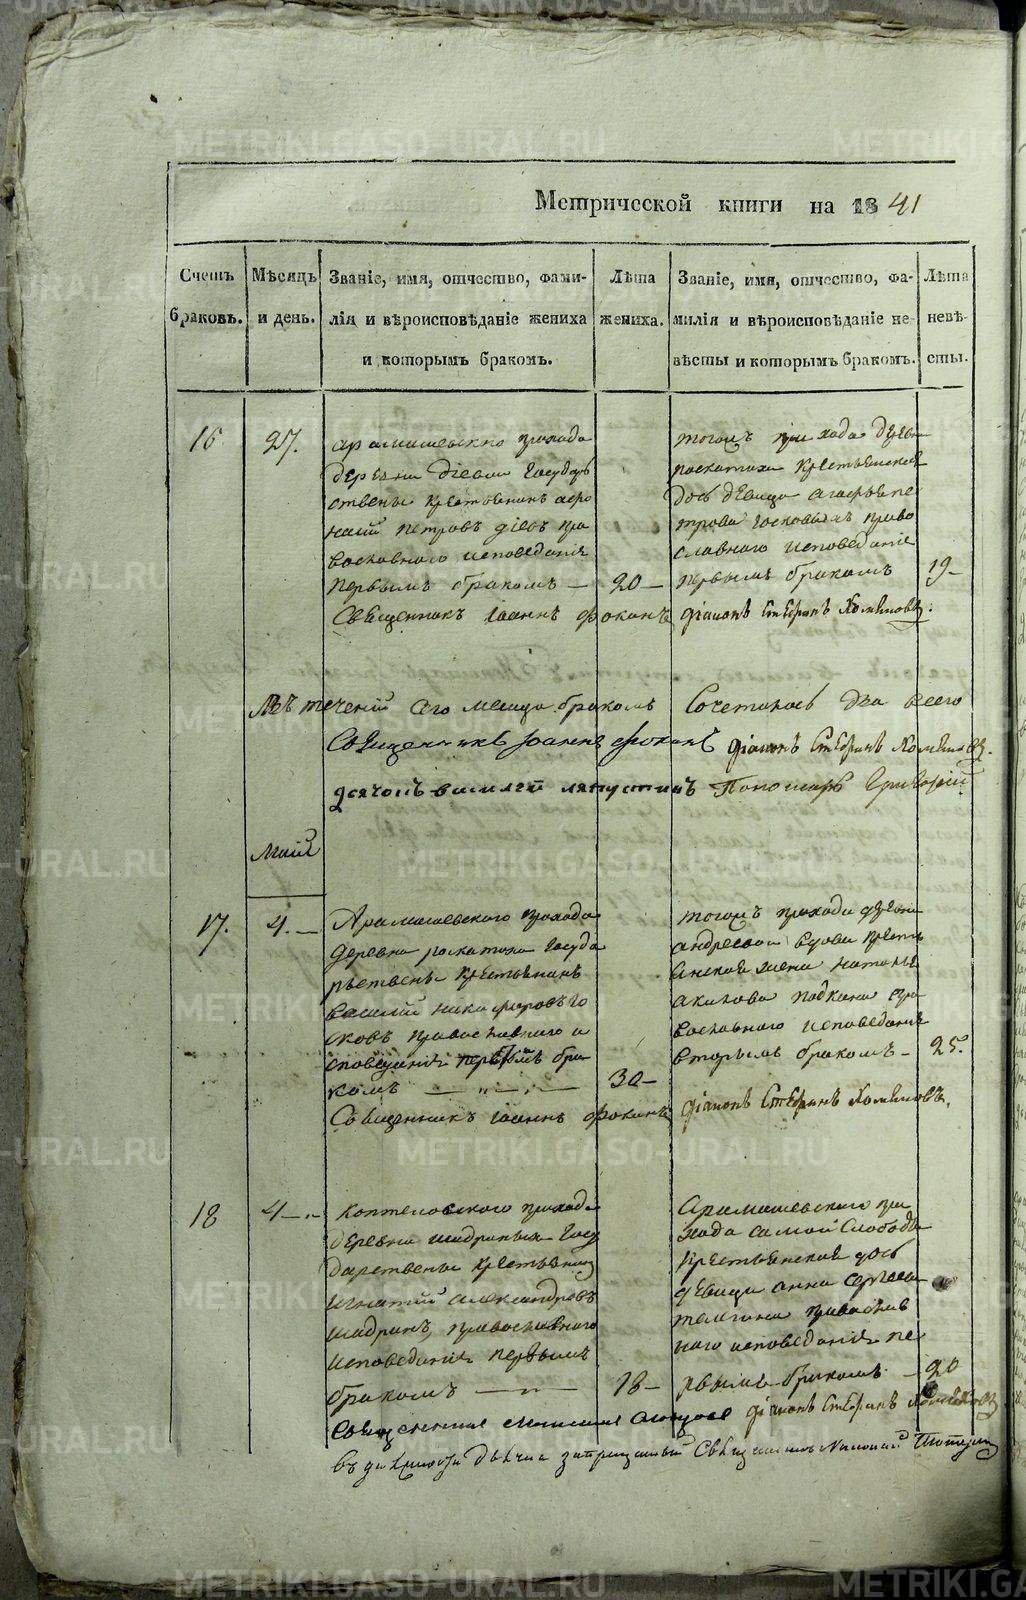 Метрической книги на 1841
Счетъ браковъ.
Мѣсяцъ и день.
Званіе, имя, отчество, фами-
лія и вѣроисповѣданіе жениха
и которымъ бракомъ.
Лѣта жениха.
Званіе, имя, отчество, фа-
милія и вѣроисповѣданіе не-
вѣсты и которымъ бракомъ.
Лѣта невѣ-
сты.
16
27.
прихода
деревни Діевой Государ
ственый крестьянинъ афо
насій Петровъ діевъ пра
вославного исповеданія
первымъ бракомъ —
20 —
Священникъ Іоаннъ Фокинъ
тогожъ при хода деревни
крестьянская
дочь девица агафья пе
трова право
славного исповеданіе
первымъ бракомъ
19 —
діаконъ Стефанъ Хомяковъ.
Въ теченіи сего месяца бракомъ Сочеталось два всего
Священникъ Іоаннъ Фокинъ діаконъ Стефанъ Хомяковъ.
дьячокъ василей ляпустинъ Пономарь Григорій
Маій
17.
4. —
Арамашевского прихода
деревни раскатихи Госуда
рьственый крестьянинъ
василий никифоровъ го
сковъ православного и
споведания первымъ бра
комъ
30 —
Священникъ Іоаннъ Фокинъ
тогожъ прихода деревни
андреевой вдова кресть
янская жена наталья
акилова подкина пра
вославного исповеданія
вторымъ бракомъ —
25.
діаконъ Стефанъ Хомяковъ.
18
4 —
Коптеловского прихода
деревни шадриныхъ Госу
дарственый крестьянинъ
игнатий александровъ
шадринъ, православного
исповеданія первымъ
бракомъ
18 —
Арамашевского при
хода самой Слободы
крестьянская дочь
девица анна сергеева
православ
ного исповеданія пе
рвымъ бракомъ —
20
діаконъ Стефанъ Хомяковъ
METRIKI.GASO-URAL.RU